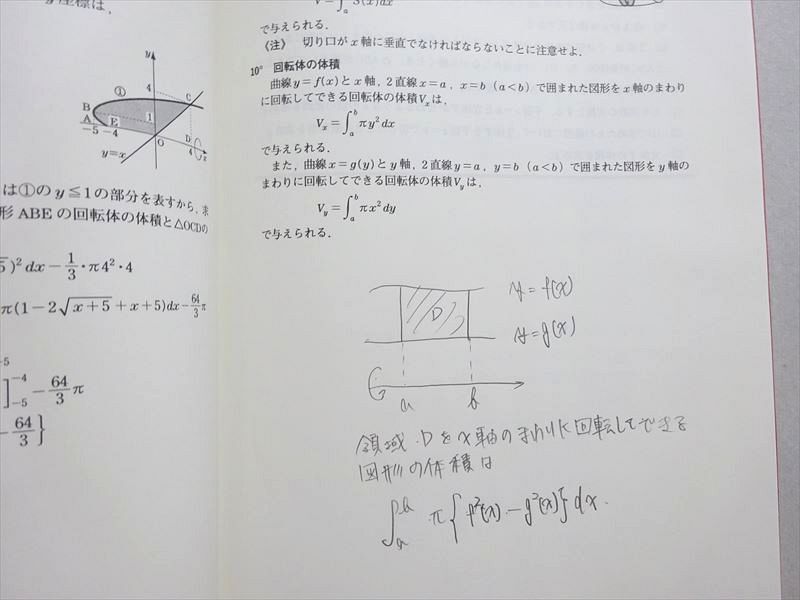 y座標は,
y
①
4
C
B
1
A
E
O
D
-5 -4
4
x
y=x
は①の y≦1 の部分を表すから, 求
形 ABE の回転体の体積と△OCDの
)² dx - 1/3・π4²・4
π(1-2√(x+5)+x+5)dx - 64/3 π
-5
]_{-5}^{-4} - 64/3 π
- 64/3 }
V=∫_a S(x)dx
で与えられる.
〈注〉 切り口が x 軸に垂直でなければならないことに注意せよ.
10° 回転体の体積
曲線 y=f(x) と x 軸, 2直線 x=a, x=b (a<b) で囲まれた図形を x 軸のまわり
に回転してできる回転体の体積 V_x は,
V_x = ∫_a^b πy² dx
で与えられる.
また, 曲線 x=g(y) と y 軸, 2直線 y=a, y=b (a<b) で囲まれた図形を y 軸の
まわりに回転してできる回転体の体積 V_y は,
V_y = ∫_a^b πx² dy
で与えられる.
y=f(x)
D
y=g(x)
a b
領域 D を x 軸のまわりに回転してできる
図形の体積は
∫_a^b π{f²(x)-g²(x)}dx.